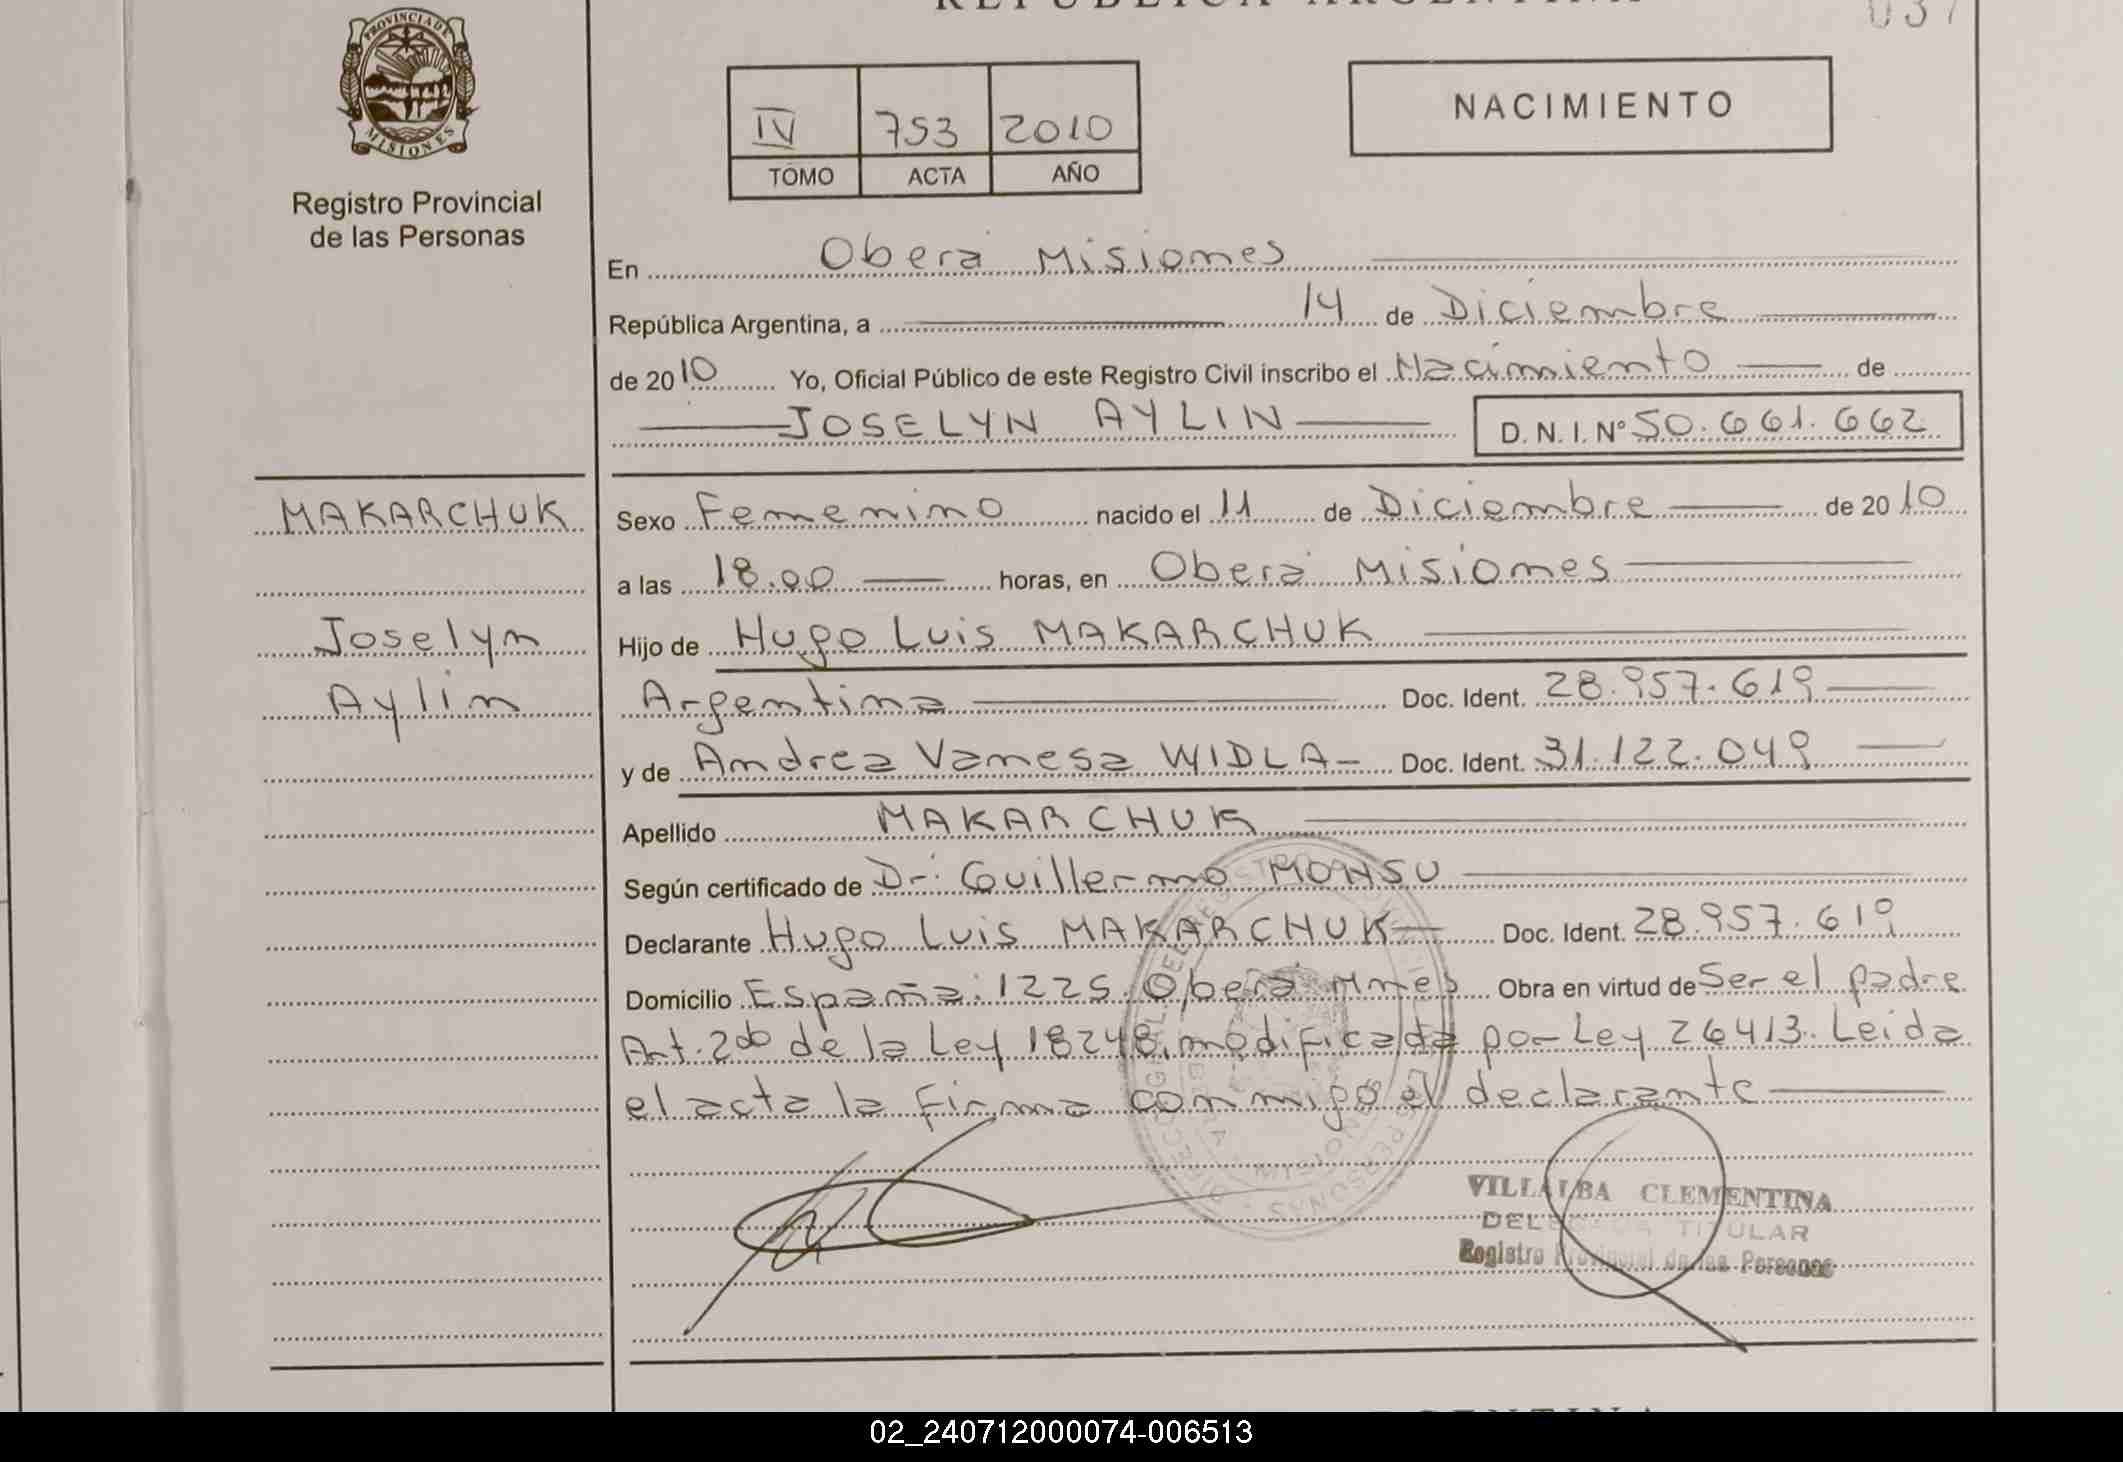 REPUBLICA ARGENTINA
037
PROVINCIA DE MISIONES
Registro Provincial
de las Personas
IV 753 2010
TOMO ACTA AÑO
NACIMIENTO
En Obera Misiones
República Argentina, a 14 de Diciembre
de 2010 Yo, Oficial Público de este Registro Civil inscribo el Nacimiento de
JOSELYN AYLIN D. N. I. Nº 50.661.662
MAKARCHUK
Joselyn
Aylin
Sexo Femenino nacido el 11 de Diciembre de 2010
a las 18.00 horas, en Oberá Misiones
Hijo de Hugo Luis MAKARCHUK
Argentina Doc. Ident. 28.957.619
y de Andrea Vanesa WIDLA Doc. Ident. 31.122.049
Apellido MAKARCHUK
Según certificado de Dr. Guillermo MONSU
Declarante Hugo Luis MAKARCHUK Doc. Ident. 28.957.619
Domicilio España 1225 Oberá Mnes Obra en virtud de Ser el padre
Art. 2do de la Ley 18248 modificada por Ley 26413. Leida
el acta la firma conmigo el declarante
VILLALBA CLEMENTINA
DELEGADA TITULAR
Registro Provincial de las Personas
02_240712000074-006513